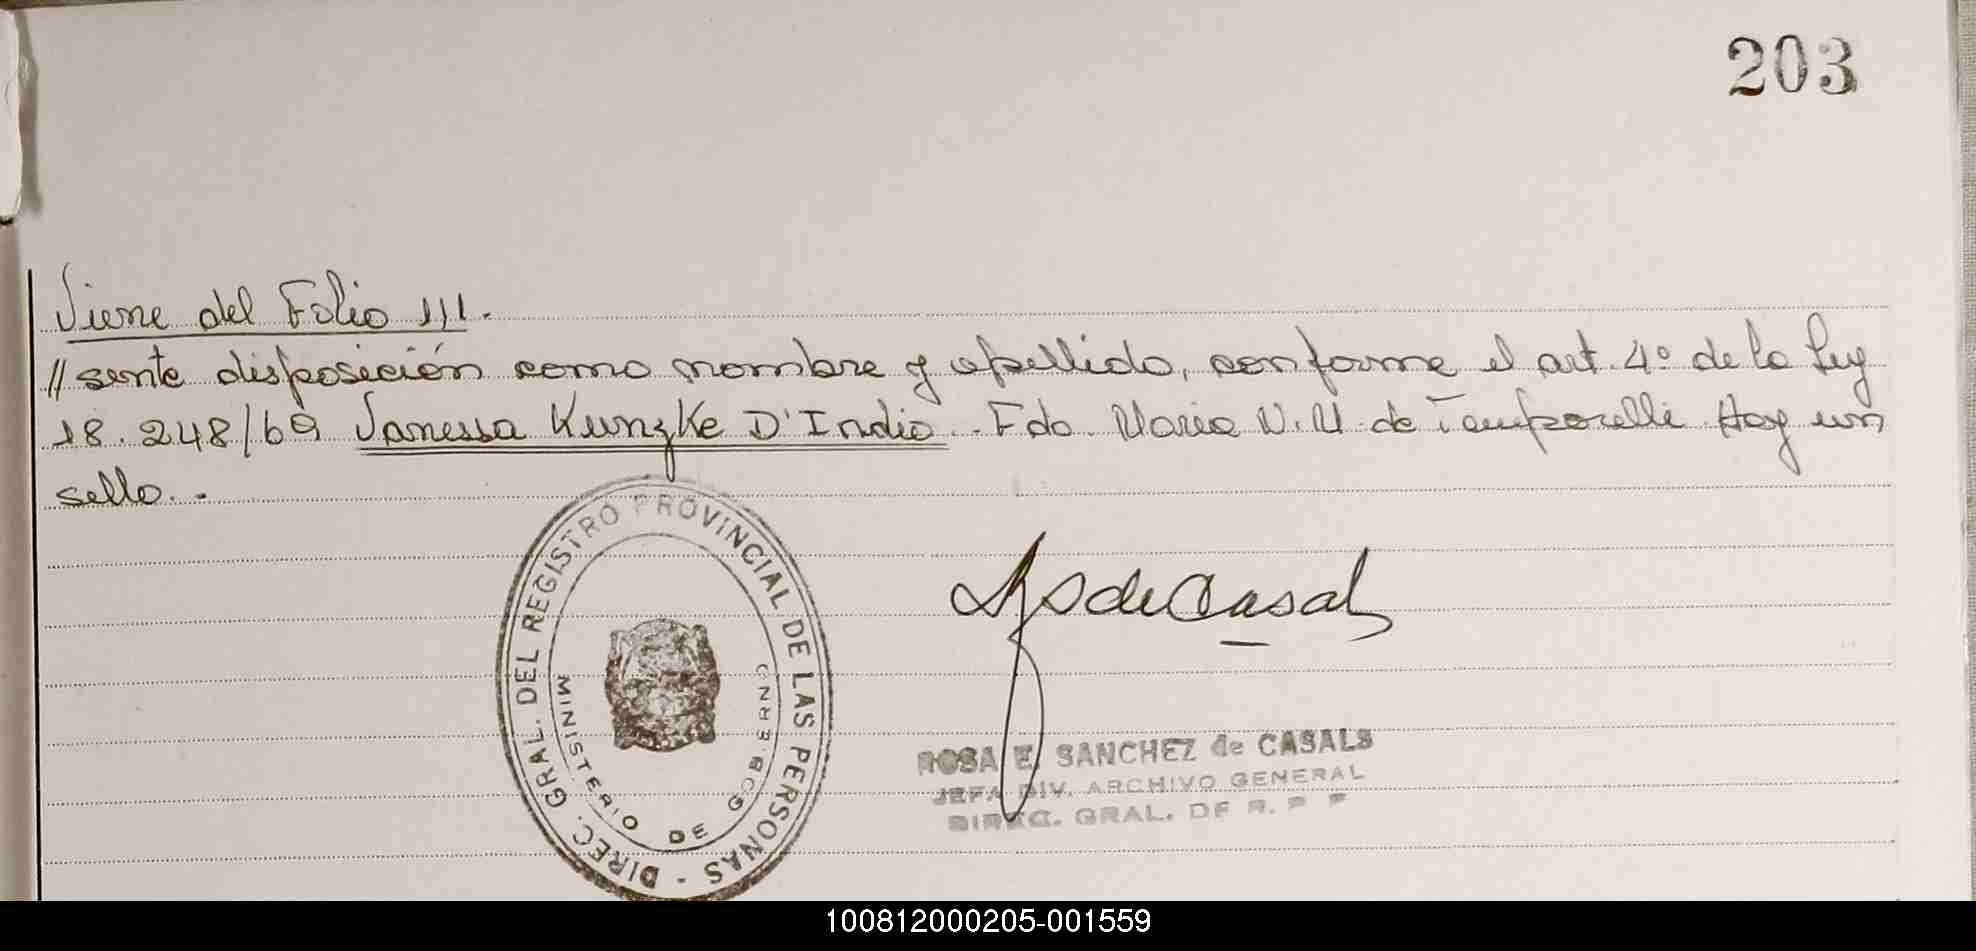 203
Viene del Folio 111.
// sente disposición como nombre y apellido, conforme el art. 4º de la Ley
18.248/69 Vanessa Kunzke D'Indio.. Fdo. Maria N.U. de Temporelli Hay un
sello. -
DIREC. GRAL. DEL REGISTRO PROVINCIAL DE LAS PERSONAS -
MINISTERIO DE GOBIERNO
S de Casal
ROSA E. SANCHEZ de CASALS
JEFA DIV. ARCHIVO GENERAL
DIREC. GRAL. DE R. P P
100812000205-001559